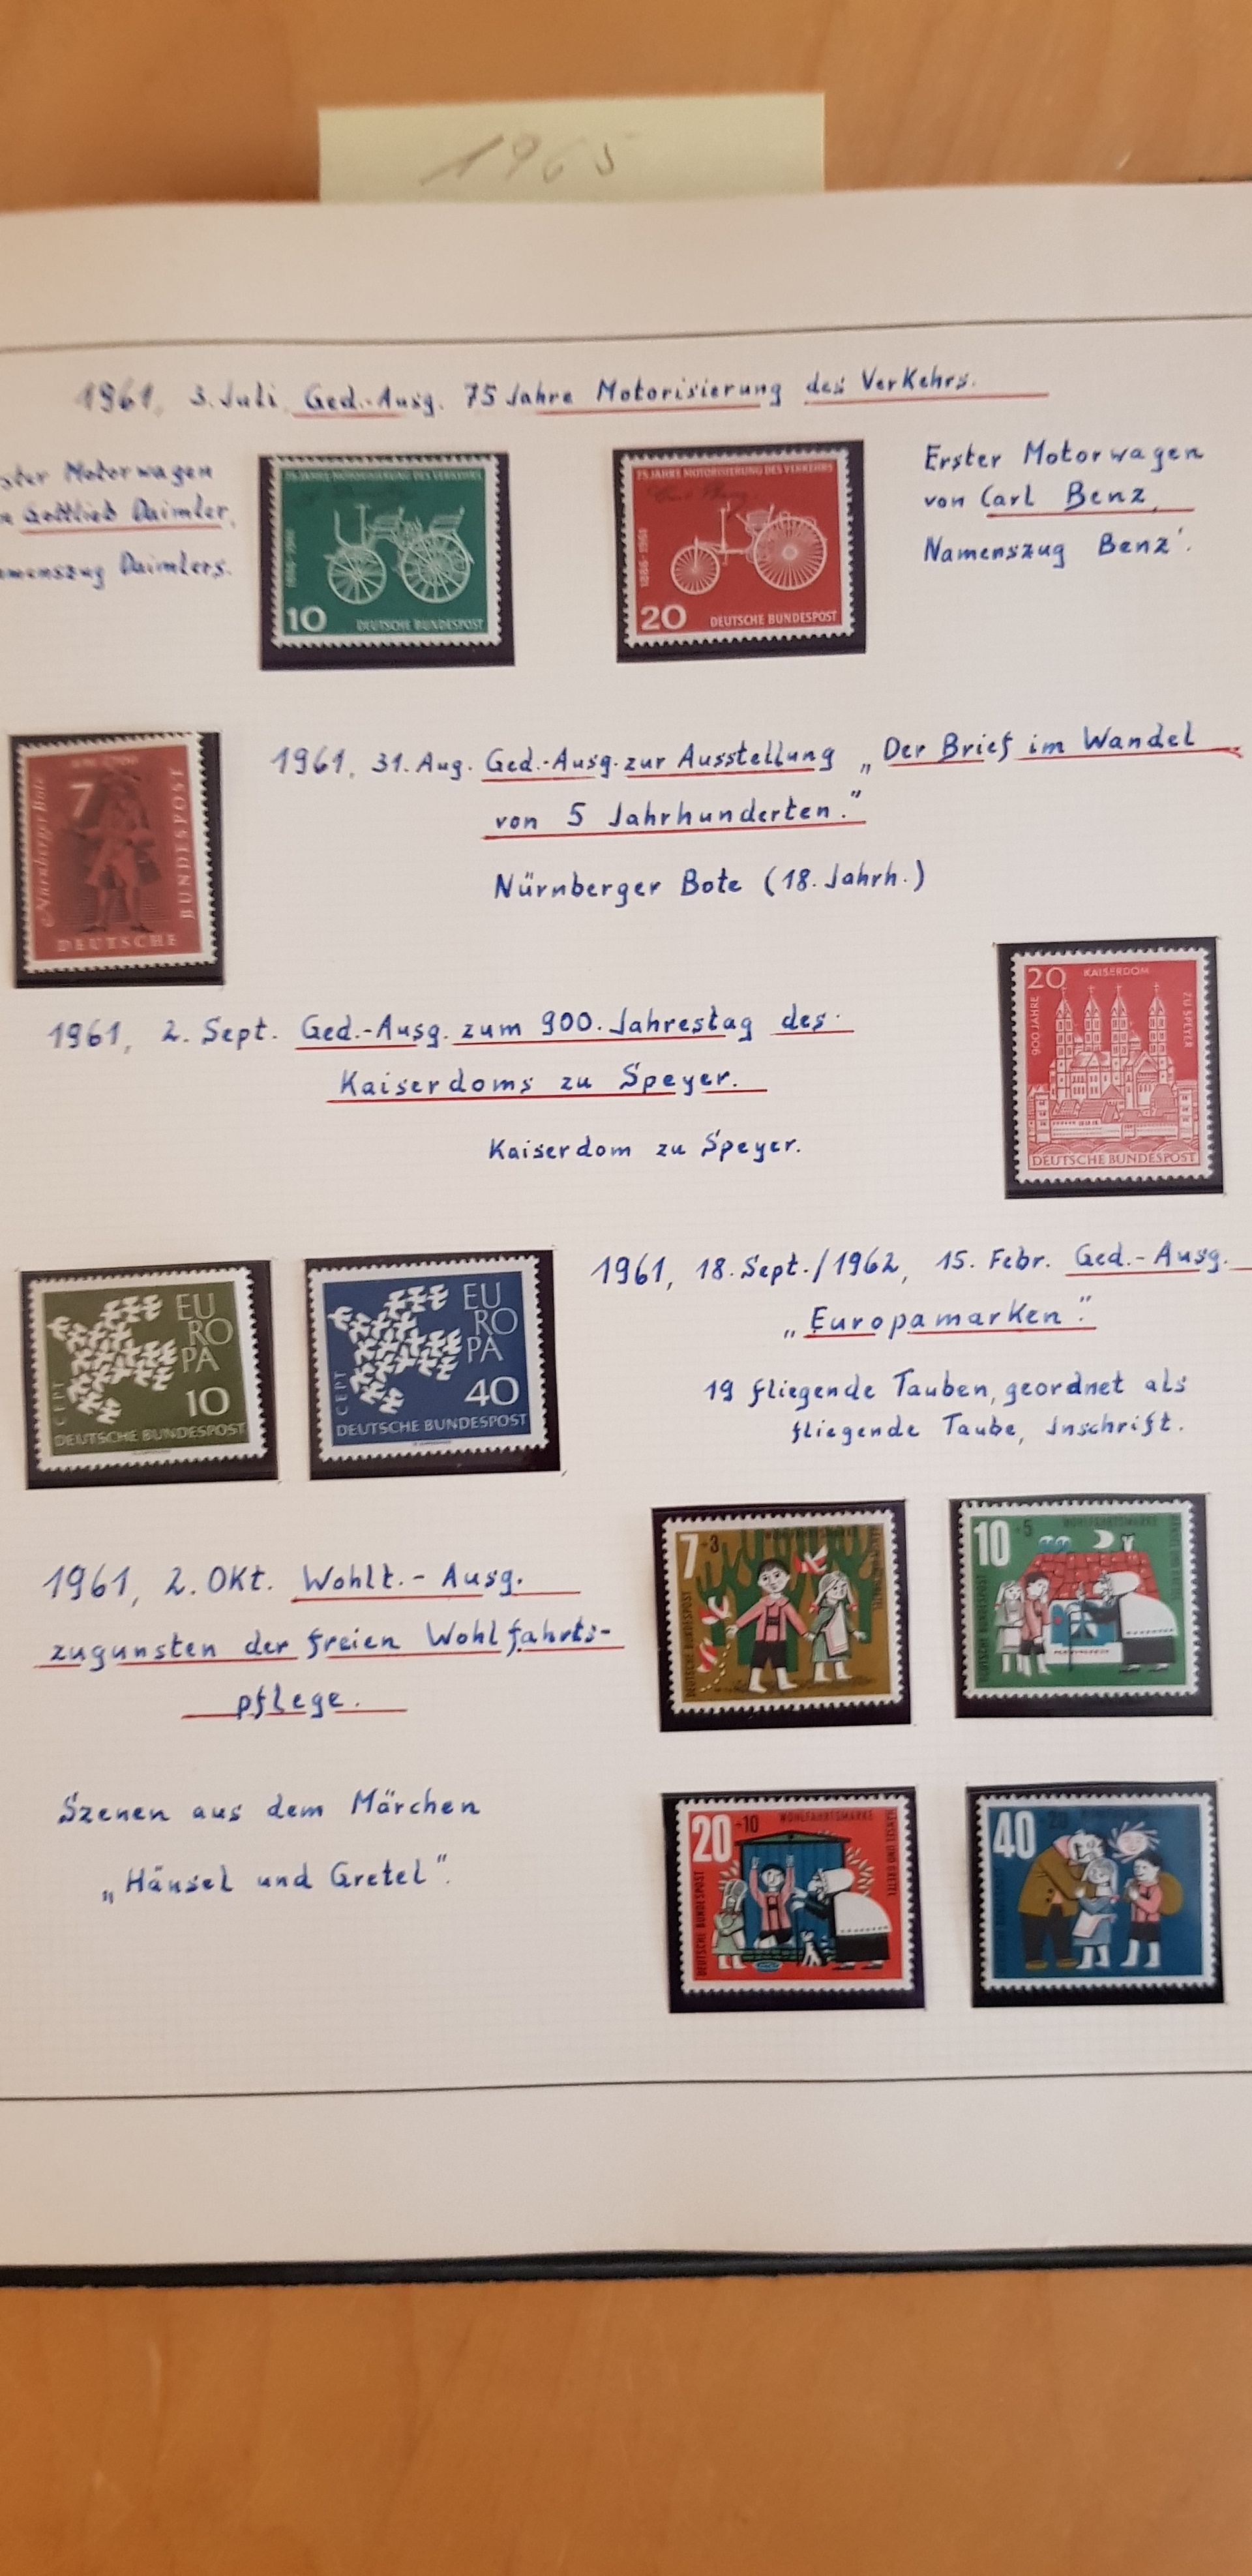 1965
1961, 3. Juli, Ged.-Ausg. 75 Jahre Motorisierung des Verkehrs.
Motorwagen
Gottlieb Daimler,
Daimlers.
75 JAHRE MOTORISIERUNG DES VERKEHRS
1886-1961
10 DEUTSCHE BUNDESPOST
75 JAHRE MOTORISIERUNG DES VERKEHRS
1886-1961
20 DEUTSCHE BUNDESPOST
Erster Motorwagen
von Carl Benz,
Namenszug Benz'.
7
Nürnberger Bote
BUNDESPOST
DEUTSCHE
1961, 31. Aug. Ged.-Ausg. zur Ausstellung „Der Brief im Wandel
von 5 Jahrhunderten."
Nürnberger Bote (18. Jahrh.)
1961, 2. Sept. Ged.-Ausg. zum 900. Jahrestag des
Kaiserdoms zu Speyer.
Kaiserdom zu Speyer.
20 KAISERDOM
900 JAHRE
ZU SPEYER
DEUTSCHE BUNDESPOST
EU
RO
PA
CEPT
10
DEUTSCHE BUNDESPOST
EU
RO
PA
CEPT
40
DEUTSCHE BUNDESPOST
1961, 18. Sept./1962, 15. Febr. Ged.-Ausg.
„Europamarken."
19 fliegende Tauben, geordnet als
fliegende Taube, Inschrift.
1961, 2. Okt. Wohlt.-Ausg.
zugunsten der freien Wohlfahrts-
pflege.
Szenen aus dem Märchen
„Hänsel und Gretel".
7+3 WOHLFAHRTSMARKE
DEUTSCHE BUNDESPOST
10+5 WOHLFAHRTSMARKE
HÄNSEL UND GRETEL
DEUTSCHE BUNDESPOST
20+10 WOHLFAHRTSMARKE
HÄNSEL UND GRETEL
DEUTSCHE BUNDESPOST
40